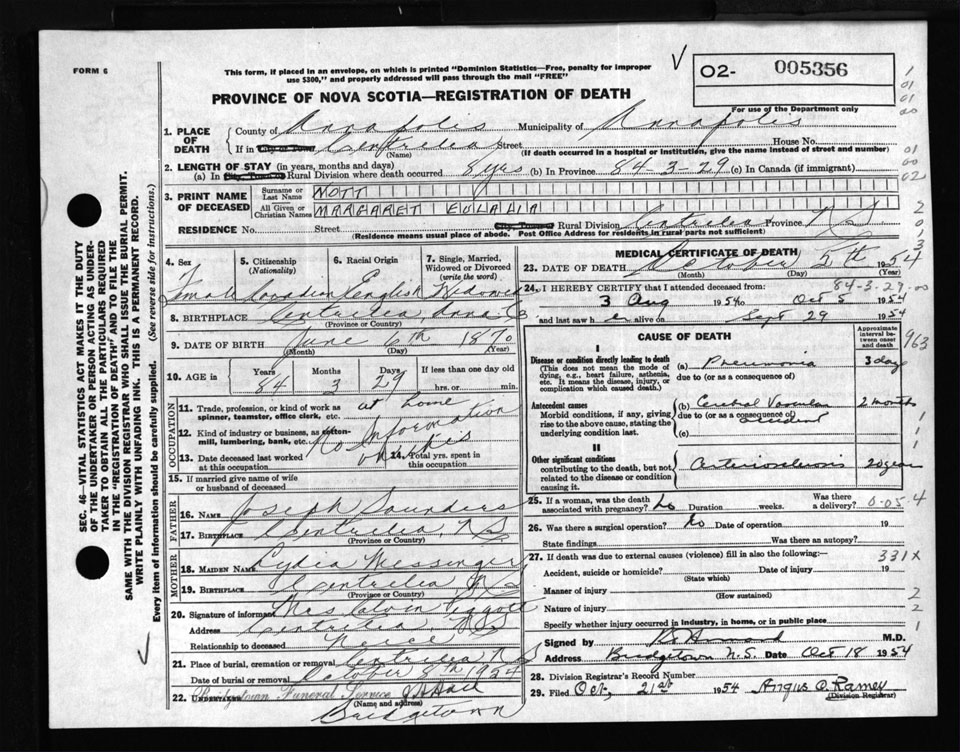 FORM 6
This form, if placed in an envelope, on which is printed "Dominion Statistics—Free, penalty for improper
use $300," and properly addressed will pass through the mail "FREE"
02- 005356
For use of the Department only
PROVINCE OF NOVA SCOTIA—REGISTRATION OF DEATH
1. PLACE OF DEATH
County of Annapolis Municipality of Annapolis
If in City, Town or Centrelea Street House No.
(Name) (If death occurred in a hospital or institution, give the name instead of street and number)
2. LENGTH OF STAY (in years, months and days)
(a) In City, Town or Rural Division where death occurred 8 yrs (b) In Province 84-3-29 (c) In Canada (if immigrant)
3. PRINT NAME OF DECEASED
Surname or Last Name MOTT
All Given or Christian Names MARGARET EULALIA
RESIDENCE No. Street City, Town or Rural Division Centrelea Province N S
(Residence means usual place of abode. Post Office Address for residents in rural parts not sufficient)
4. Sex
Female
5. Citizenship
(Nationality)
Canadian
6. Racial Origin
English
7. Single, Married, Widowed or Divorced
(write the word)
Widowed
8. BIRTHPLACE Centrelea, Anna Co
(Province or Country)
9. DATE OF BIRTH June 6th 1870
(Month) (Day) (Year)
10. AGE in
Years Months Days If less than one day old
84 3 29 hrs. or min.
OCCUPATION
11. Trade, profession, or kind of work as spinner, teamster, office clerk, etc. at home
12. Kind of industry or business, as cotton-mill, lumbering, bank, etc. No Information
13. Date deceased last worked at this occupation
14. Total yrs. spent in this occupation
15. If married give name of wife or husband of deceased
FATHER
16. NAME Joseph Saunders
17. BIRTHPLACE Centrelea, N S
(Province or Country)
MOTHER
18. MAIDEN NAME Lydia Messenger
19. BIRTHPLACE Centrelea N S
(Province or Country)
20. Signature of informant Mrs Calvin Piggott
Address Centrelea, N S
Relationship to deceased Neice
21. Place of burial, cremation or removal Centrelea N S
Date of burial or removal October 8th 1954
22. UNDERTAKER Bridgetown Funeral Service
(Name and address)
Bridgetown
MEDICAL CERTIFICATE OF DEATH
23. DATE OF DEATH October 5th 1954
(Month) (Day) (Year)
84-3-29-00
24. I HEREBY CERTIFY that I attended deceased from:
3 Aug 1954 to Oct 5 1954
and last saw her alive on Sept 29 1954
CAUSE OF DEATH
Approximate interval between onset and death
963
I
Disease or condition directly leading to death
(This does not mean the mode of dying, e.g., heart failure, asthenia, etc. It means the disease, injury, or complication which caused death.)
(a) Pneumonia 3 days
due to (or as a consequence of)
Antecedent causes
Morbid conditions, if any, giving rise to the above cause, stating the underlying condition last.
(b) Cerebral Vascular Accident 2 months
due to (or as a consequence of)
(c)
II
Other significant conditions
contributing to the death, but not related to the disease or condition causing it.
Arteriosclerosis 20 years
25. If a woman, was the death associated with pregnancy? No Duration weeks. Was there a delivery? 0-05-4
26. Was there a surgical operation? No Date of operation 19
State findings Was there an autopsy?
27. If death was due to external causes (violence) fill in also the following:— 331X
Accident, suicide or homicide? Date of injury 19
(State which)
Manner of injury
(How sustained)
Nature of injury
Specify whether injury occurred in industry, in home, or in public place
Signed by M.D.
Address Bridgetown N.S. Date Oct 18 1954
28. Division Registrar's Record Number
29. Filed Oct. 21st 1954 Angus O. Ramey
(Division Registrar)
SEC. 46—VITAL STATISTICS ACT MAKES IT THE DUTY
OF THE UNDERTAKER OR PERSON ACTING AS UNDER-
TAKER TO OBTAIN ALL THE PARTICULARS REQUIRED
IN THE "REGISTRATION OF DEATH" AND TO FILE THE
SAME WITH THE DIVISION REGISTRAR WHO SHALL ISSUE THE BURIAL PERMIT.
WRITE PLAINLY WITH UNFADING INK. THIS IS A PERMANENT RECORD.
Every item of information should be carefully supplied. (See reverse side for instructions.)